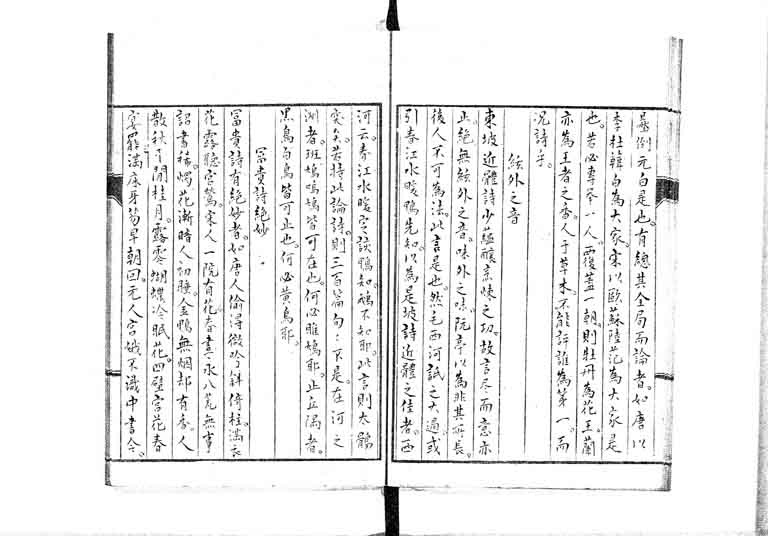 㬪倒元白是也。有總其全局而論者。如唐以
李杜韓白為大家。宋以歐蘇陸范為大家是
也。若必專举一人。而覆蓋一朝。則牡丹為花王。蘭
亦為王者之香。人于草木。不能評誰為第一。而
况詩乎。
絃外之音
東坡近體詩少蘊釀烹煉之功。故言尽而意亦
止。絶無絃外之音。味外之味。阮亭以為非其所長。
後人不可為法。此言是也。然毛西河詆之太過。或
引春江水暖鴨先知。以為是坡詩近體之佳者。西
河云。春江水暖。定該鴨知。鵝不知耶。此言則太鶻
突矣。若持此論詩。則三百篇句句不是。在河之
洲者。班鳩鳲鳩皆可在也。何必雎鳩耶。止丘隅者。
黑鳥白鳥皆可止也。何必黃鳥耶。
冨貴詩絶妙
冨貴詩有絶妙者。如唐人偷得微吟斜倚柱。滿衣
花露聽宮鶯。宋人一院有花春晝永。八荒無事
詔書稀。燭花漸暗人初睡。金鴨無烟却有香。人
散秋千閒桂月。露零蝴蝶冷眠花。四壁宮花春
宴罷。滿床牙笏早朝回。元人宮娥不識中書令。